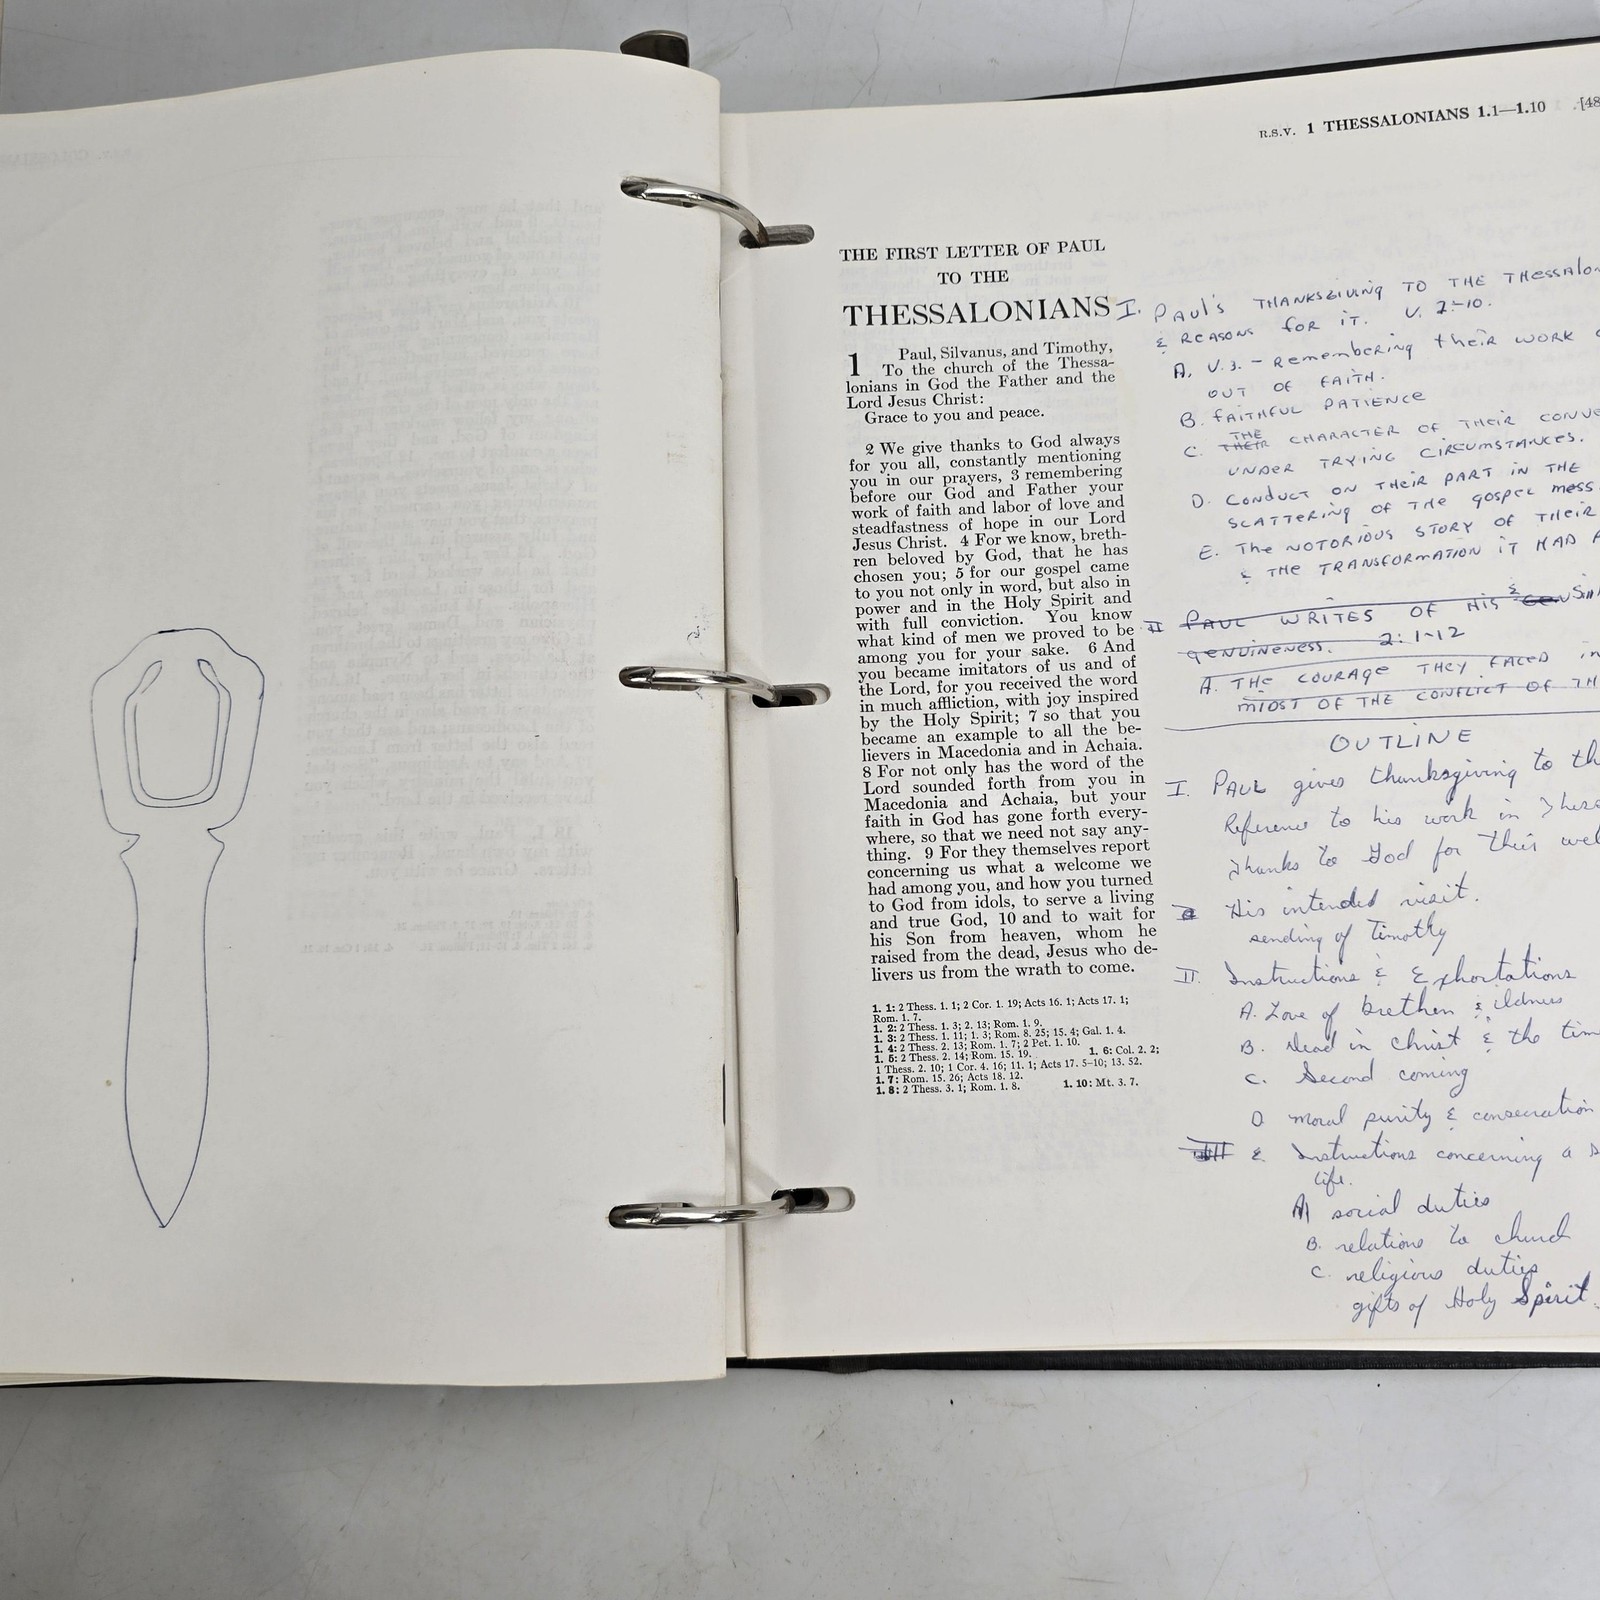 R.S.V. 1 THESSALONIANS 1.1—1.10 [48
THE FIRST LETTER OF PAUL
TO THE
THESSALONIANS
1 Paul, Silvanus, and Timothy,
To the church of the Thessa-
lonians in God the Father and the
Lord Jesus Christ:
Grace to you and peace.
2 We give thanks to God always
for you all, constantly mentioning
you in our prayers, 3 remembering
before our God and Father your
work of faith and labor of love and
steadfastness of hope in our Lord
Jesus Christ. 4 For we know, breth-
ren beloved by God, that he has
chosen you; 5 for our gospel came
to you not only in word, but also in
power and in the Holy Spirit and
with full conviction. You know
what kind of men we proved to be
among you for your sake. 6 And
you became imitators of us and of
the Lord, for you received the word
in much affliction, with joy inspired
by the Holy Spirit; 7 so that you
became an example to all the be-
lievers in Macedonia and in Achaia.
8 For not only has the word of the
Lord sounded forth from you in
Macedonia and Achaia, but your
faith in God has gone forth every-
where, so that we need not say any-
thing. 9 For they themselves report
concerning us what a welcome we
had among you, and how you turned
to God from idols, to serve a living
and true God, 10 and to wait for
his Son from heaven, whom he
raised from the dead, Jesus who de-
livers us from the wrath to come.
1. 1: 2 Thess. 1. 1; 2 Cor. 1. 19; Acts 16. 1; Acts 17. 1;
Rom. 1. 7.
1. 2: 2 Thess. 1. 3; 2. 13; Rom. 1. 9.
1. 3: 2 Thess. 1. 11; 1. 3; Rom. 8. 25; 15. 4; Gal. 1. 4.
1. 4: 2 Thess. 2. 13; Rom. 1. 7; 2 Pet. 1. 10.
1. 5: 2 Thess. 2. 14; Rom. 15. 19. 1. 6: Col. 2. 2;
1 Thess. 2. 10; 1 Cor. 4. 16; 11. 1; Acts 17. 5-10; 13. 52.
1. 7: Rom. 15. 26; Acts 18. 12.
1. 8: 2 Thess. 3. 1; Rom. 1. 8. 1. 10: Mt. 3. 7.
I. PAUL'S THANKSGIVING TO THE THESSALON
& REASONS FOR IT. V. 2-10.
A. V.3. - Remembering their WORK
OUT OF FAITH.
B. FAITHFUL PATIENCE
C. THEIR THE CHARACTER OF THEIR CONVE
UNDER TRYING CIRCUMSTANCES.
D. CONDUCT ON THEIR PART IN THE
SCATTERING OF THE GOSPEL MESS
E. The NOTORIOUS STORY OF THEIR
& THE TRANSFORMATION IT HAD
II PAUL WRITES OF HIS &
GENUINENESS. 2:1-12
A. THE COURAGE THEY FACED IN
MIDST OF THE CONFLICT OF TH
OUTLINE
I. PAUL gives thanksgiving to th
Reference to his work in Thess
Thanks to God for their wel
His intended visit.
sending of Timothy
II. Instructions & Exhortations
A. Love of brethen & idlness
B. Dead in Christ & the tim
C. Second coming
D moral purity & consecration
III E. Instructions concerning a s
life.
A social duties
B. relations to church
C. religious duties
gifts of Holy Spirit.